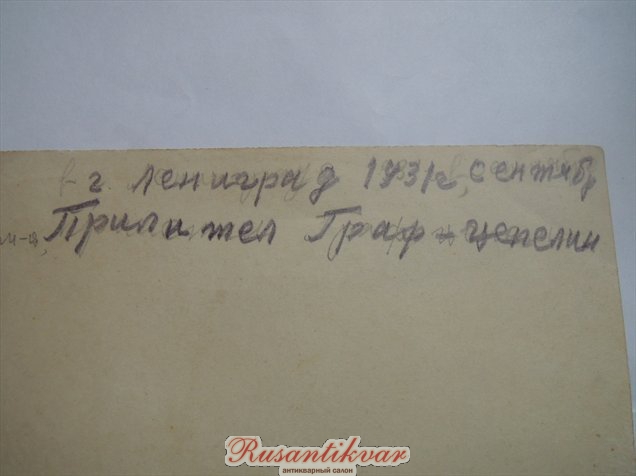 в г. Лениград 1931г, сентябр
м-ц, Прилител Граф-цепелин
Rusantikvar
антикварный салон